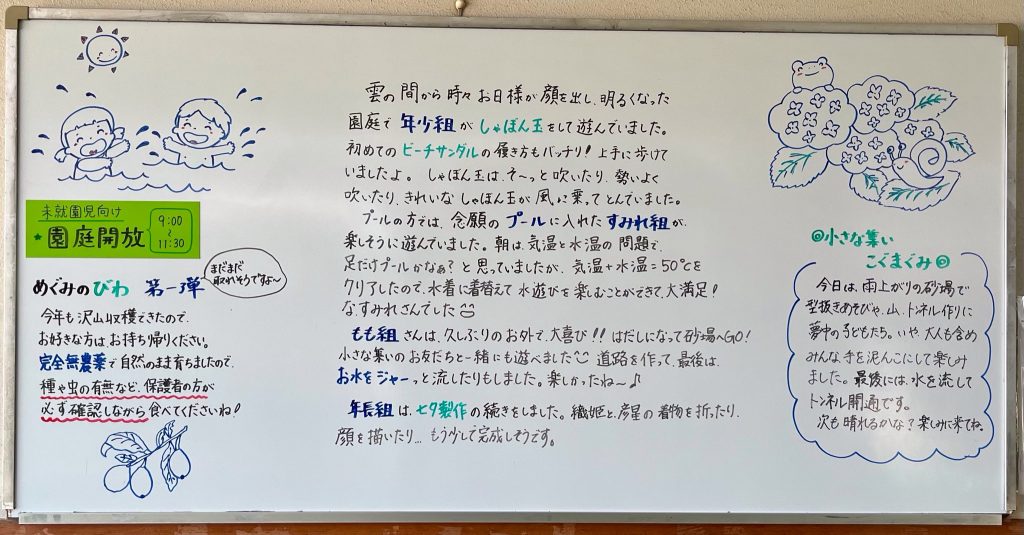 未就園児向け
★園庭開放
9:00
～
11:30
めぐみのびわ 第一弾
まだまだ
取れそうですよ～
今年も沢山収穫できたので、
お好きな方はお持ち帰りください。
完全無農薬で自然のまま育ちましたので、
種や虫の有無など、保護者の方が
必ず確認しながら食べてくださいね!
雲の間から時々お日様が顔を出し、明るくなった
園庭で年少組がしゃぼん玉をして遊んでいました。
初めてのビーチサンダルの履き方もバッチリ! 上手に歩けて
いましたよ。しゃぼん玉は、そ～っと吹いたり、勢いよく
吹いたり、きれいなしゃぼん玉が風に乗ってとんでいました。
プールの方では、念願のプールに入れたすみれ組が、
楽しそうに遊んでいました。朝は、気温と水温の問題で、
足だけプールかなぁ?と思っていましたが、気温+水温=50℃を
クリアしたので、水着に着替えて水遊びを楽しむことができて、大満足!
な、すみれさんでした
もも組さんは、久しぶりのお外で、大喜び!! はだしになって砂場へGO!
小さな集いのお友だちと一緒にも遊べました 道路を作って、最後は、
お水をジャーっと流したりもしました。楽しかったね～♪
年長組は、七夕製作の続きをしました。織姫と、彦星の着物を折ったり、
顔を描いたり… もう少しで完成しそうです。
◎小さな集い
こぐまぐみ◎
今日は、雨上がりの砂場で
型抜きあそびや、山、トンネル作りに
夢中の子どもたち。いや、大人も含め
みんな手を泥んこにして楽しみ
ました。最後には、水を流して
トンネル開通です。
次も晴れるかな?楽しみに来てね。